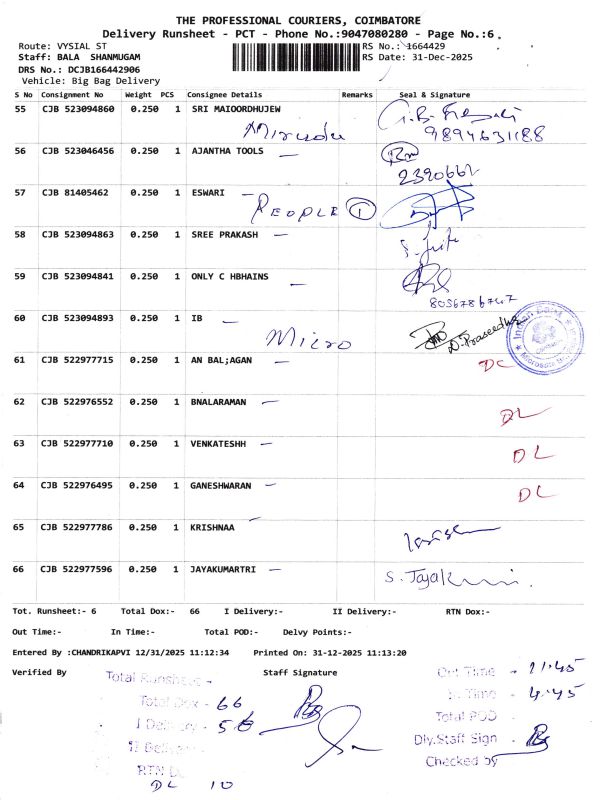 THE PROFESSIONAL COURIERS, COIMBATORE
Delivery Runsheet - PCT - Phone No.:9047080280 - Page No.:6.
Route: VYSIAL ST RS No.: 1664429
Staff: BALA SHANMUGAM RS Date: 31-Dec-2025
DRS No.: DCJB166442906
Vehicle: Big Bag Delivery
S No Consignment No Weight PCS Consignee Details Remarks Seal & Signature
55 CJB 523094860 0.250 1 SRI MAIOORDHUJEW
Mirudu 9894631188
56 CJB 523046456 0.250 1 AJANTHA TOOLS —
2390662
57 CJB 81405462 0.250 1 ESWARI —
PEOPLE ①
58 CJB 523094863 0.250 1 SREE PRAKASH —
59 CJB 523094841 0.250 1 ONLY C HBHAINS —
8056786747
60 CJB 523094893 0.250 1 IB —
Micro D. Praseedha
61 CJB 522977715 0.250 1 AN BAL;AGAN — DC
62 CJB 522976552 0.250 1 BNALARAMAN — DL
63 CJB 522977710 0.250 1 VENKATESHH — DL
64 CJB 522976495 0.250 1 GANESHWARAN — DL
65 CJB 522977786 0.250 1 KRISHNAA —
66 CJB 522977596 0.250 1 JAYAKUMARTRI — S. Jayak
Tot. Runsheet:- 6 Total Dox:- 66 I Delivery:- II Delivery:- RTN Dox:-
Out Time:- In Time:- Total POD:- Delvy Points:-
Entered By :CHANDRIKAPVI 12/31/2025 11:12:34 Printed On: 31-12-2025 11:13:20
Verified By Staff Signature
Total Runsheet - Out Time - 11.45
Total Dox - 66 In Time - 4.45
I Delivery - 56 Total POD -
II Delivery - Dly.Staff Sign -
RTN D Checked by
DL 10